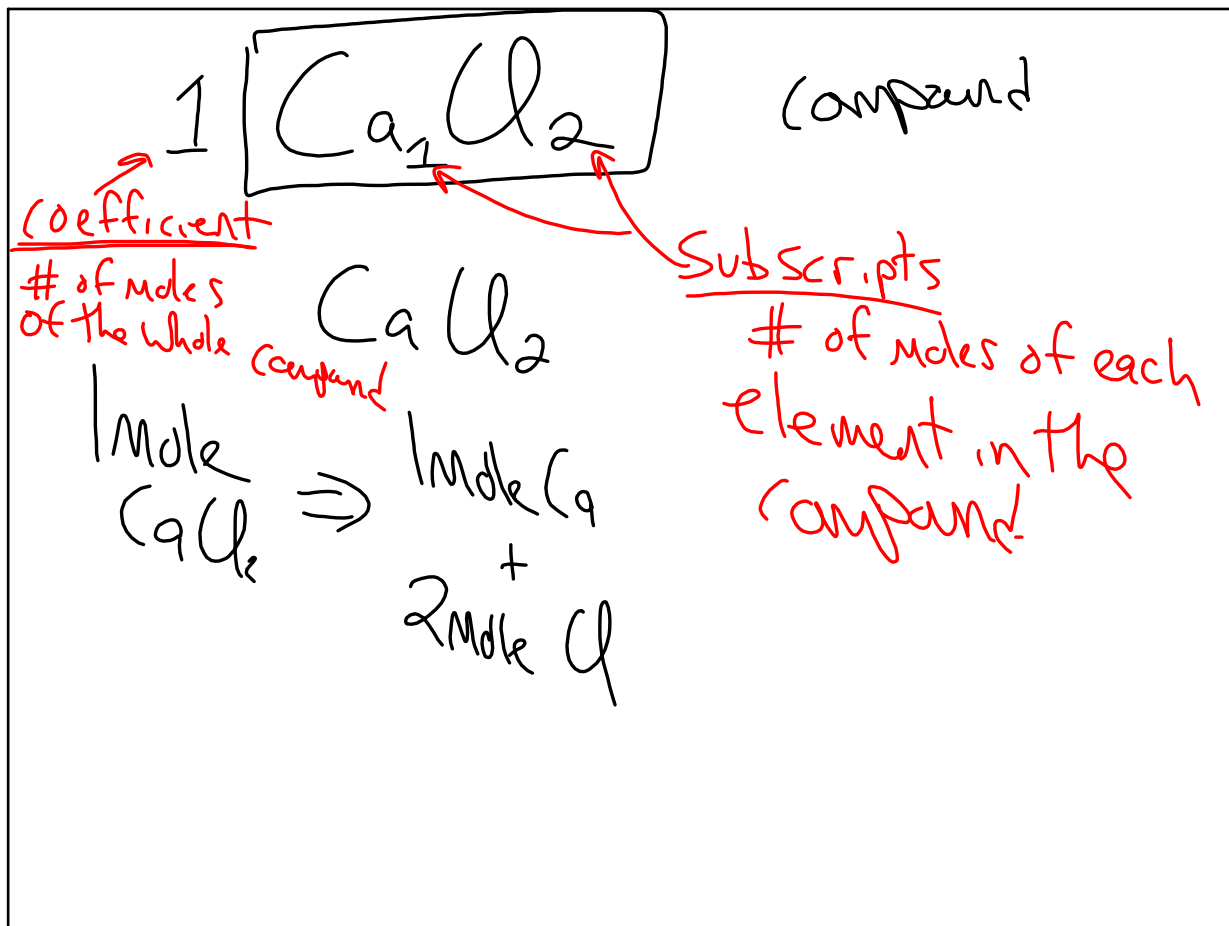 1 Ca₁Cl₂ compound
coefficient
# of moles
of the whole compound
CaCl₂
Subscripts
# of moles of each
element in the
compound.
1 mole
CaCl₂ ⇒ 1 mole Ca
+
2 mole Cl